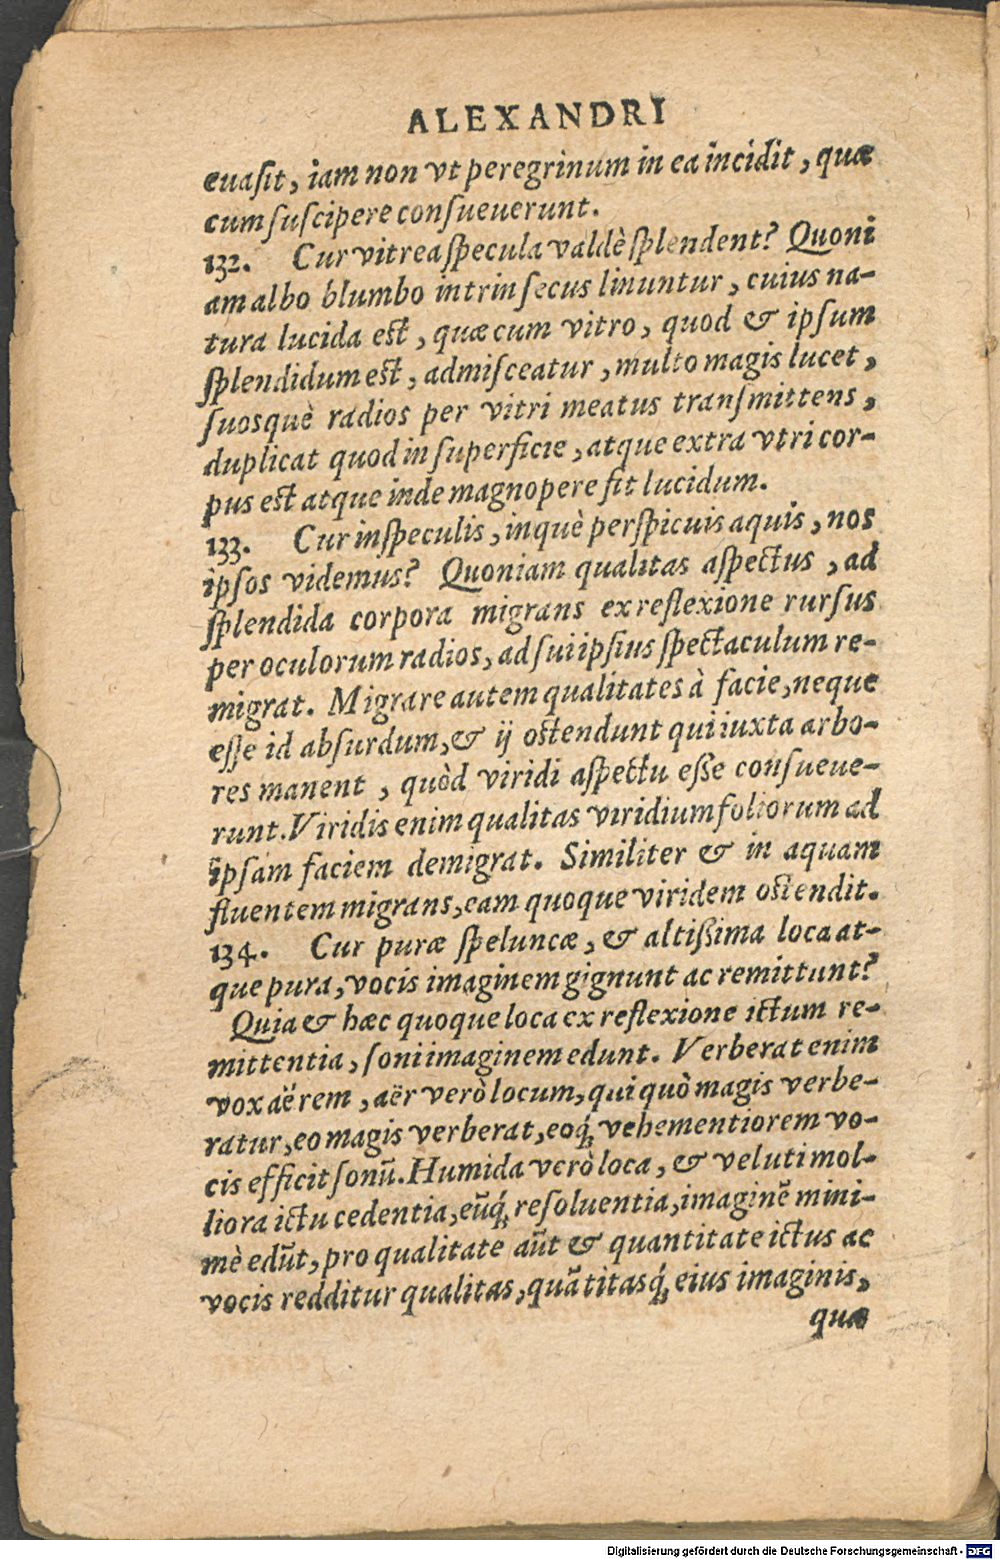 ALEXANDRI
euaſit, iam non vt peregrinum in ea incidit, quæ
cum ſuſcipere conſueuerunt.
132. Cur vitrea ſpecula valdè ſplendent? Quoni
am albo blumbo intrinſecus linuntur, cuius na-
tura lucida est, quæ cum vitro, quod & ipſum
ſplendidum est, admiſceatur, multo magis lucet,
ſuosquè radios per vitri meatus tranſmittens,
duplicat quod in ſuperficie, atque extra vtri cor-
pus est atque inde magnopere fit lucidum.
133. Cur in ſpeculis, inquè perſpicuis aquis, nos
ipſos videmus? Quoniam qualitas aſpectus, ad
ſplendida corpora migrans ex reflexione rurſus
per oculorum radios, ad ſui ipſius ſpectaculum re-
migrat. Migrare autem qualitates à facie, neque
eſſe id abſurdum, & ij ostendunt qui iuxta arbo-
res manent, quòd viridi aſpectu eſſe conſueue-
runt. Viridis enim qualitas viridium foliorum ad
ipſam faciem demigrat. Similiter & in aquam
fluentem migrans, eam quoque viridem ostendit.
134. Cur puræ ſpeluncæ, & altißima loca at-
que pura, vocis imaginem gignunt ac remittunt?
Quia & hæc quoque loca ex reflexione ictum re-
mittentia, ſoni imaginem edunt. Verberat enim
vox aërem, aër verò locum, qui quò magis verbe-
ratur, eo magis verberat, eoq́; vehementiorem vo-
cis efficit ſonũ. Humida verò loca, & veluti mol-
liora ictu cedentia, eũq́; reſoluentia, imaginẽ mini-
mè edũt, pro qualitate aũt & quantitate ictus ac
vocis redditur qualitas, quãtitasq́; eius imaginis,
quæ
Digitalisierung gefördert durch die Deutsche Forschungsgemeinschaft - DFG